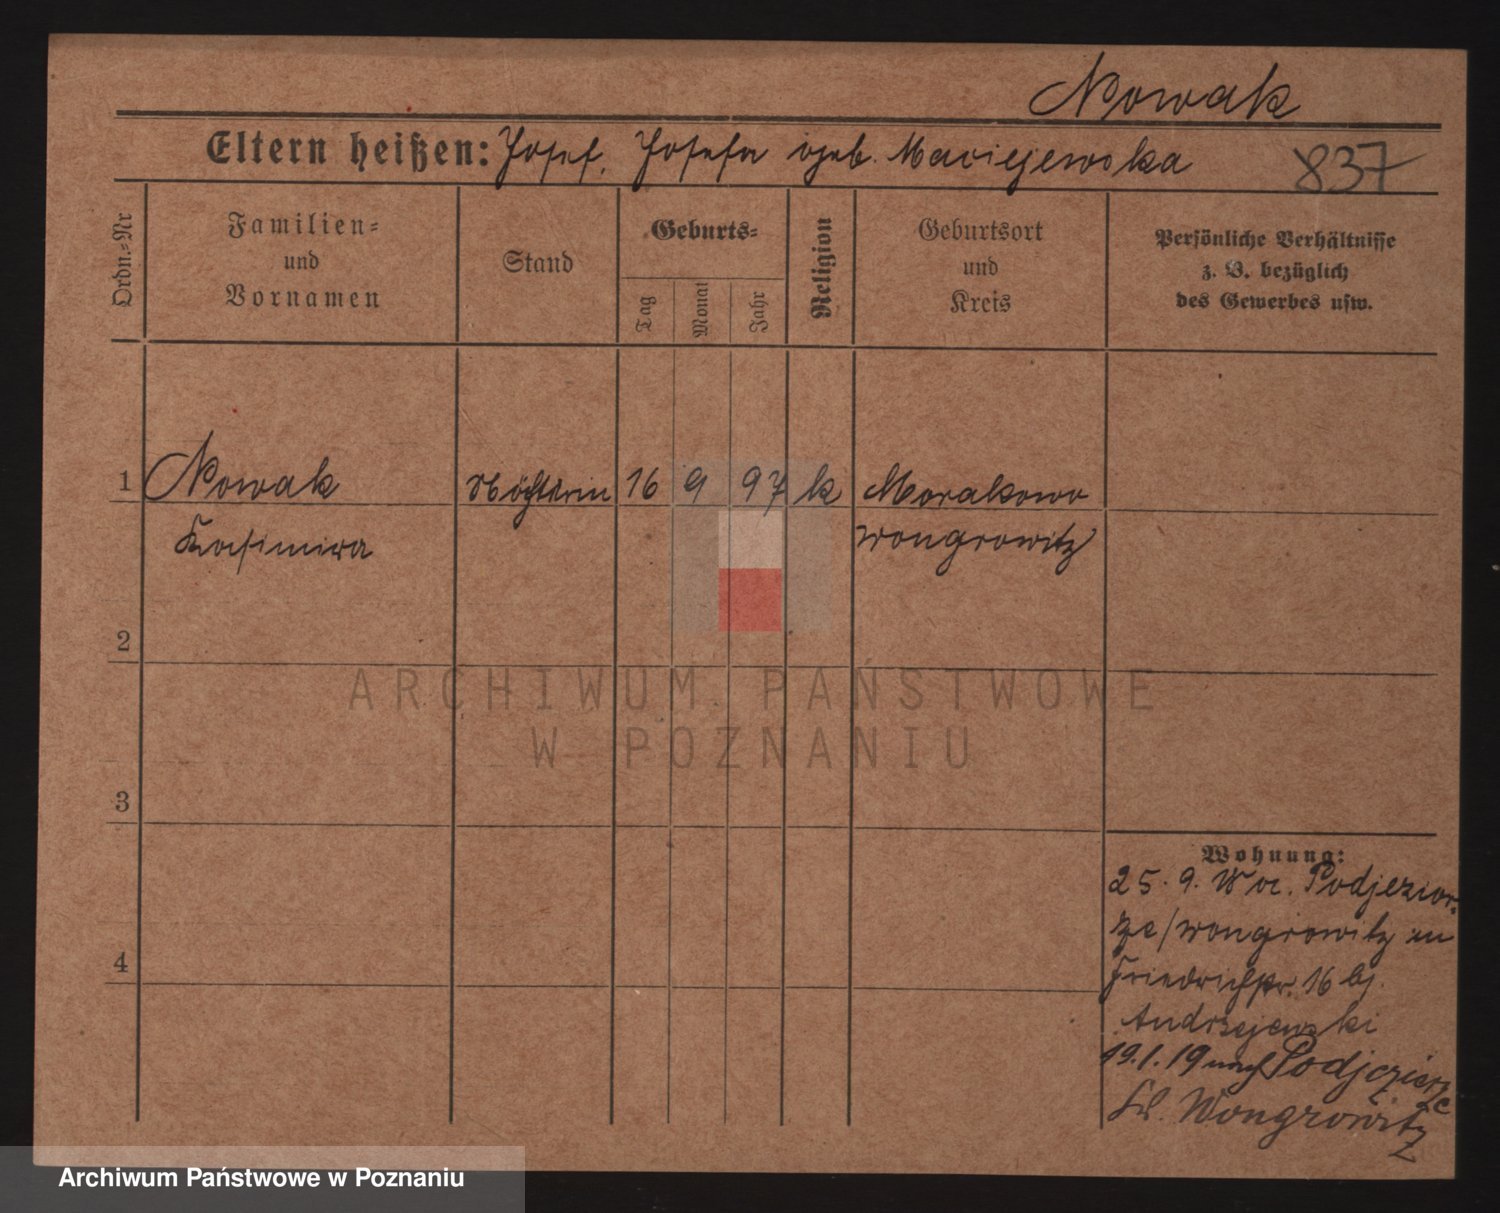 Nowak
Eltern heißen: Josef, Josefa geb. Maciejewska 837
Ordn.-Nr
Familien-
und
Vornamen
Stand
Geburts-
Tag
Monat
Jahr
Religion
Geburtsort
und
Kreis
Persönliche Verhältnisse
z. B. bezüglich
des Gewerbes usw.
1 Nowak 16 9 97 k Morakowo
Kasimira Wongrowitz
2
3
4
Wohnung:
25. 9. Podjezior-
ze/Wongrowitz
Friedrichstr. 16 bj.
Andrzejewski
19.1.19 nach Podjezierze
Wongrowitz
ARCHIWUM PAŃSTWOWE
W POZNANIU
Archiwum Państwowe w Poznaniu